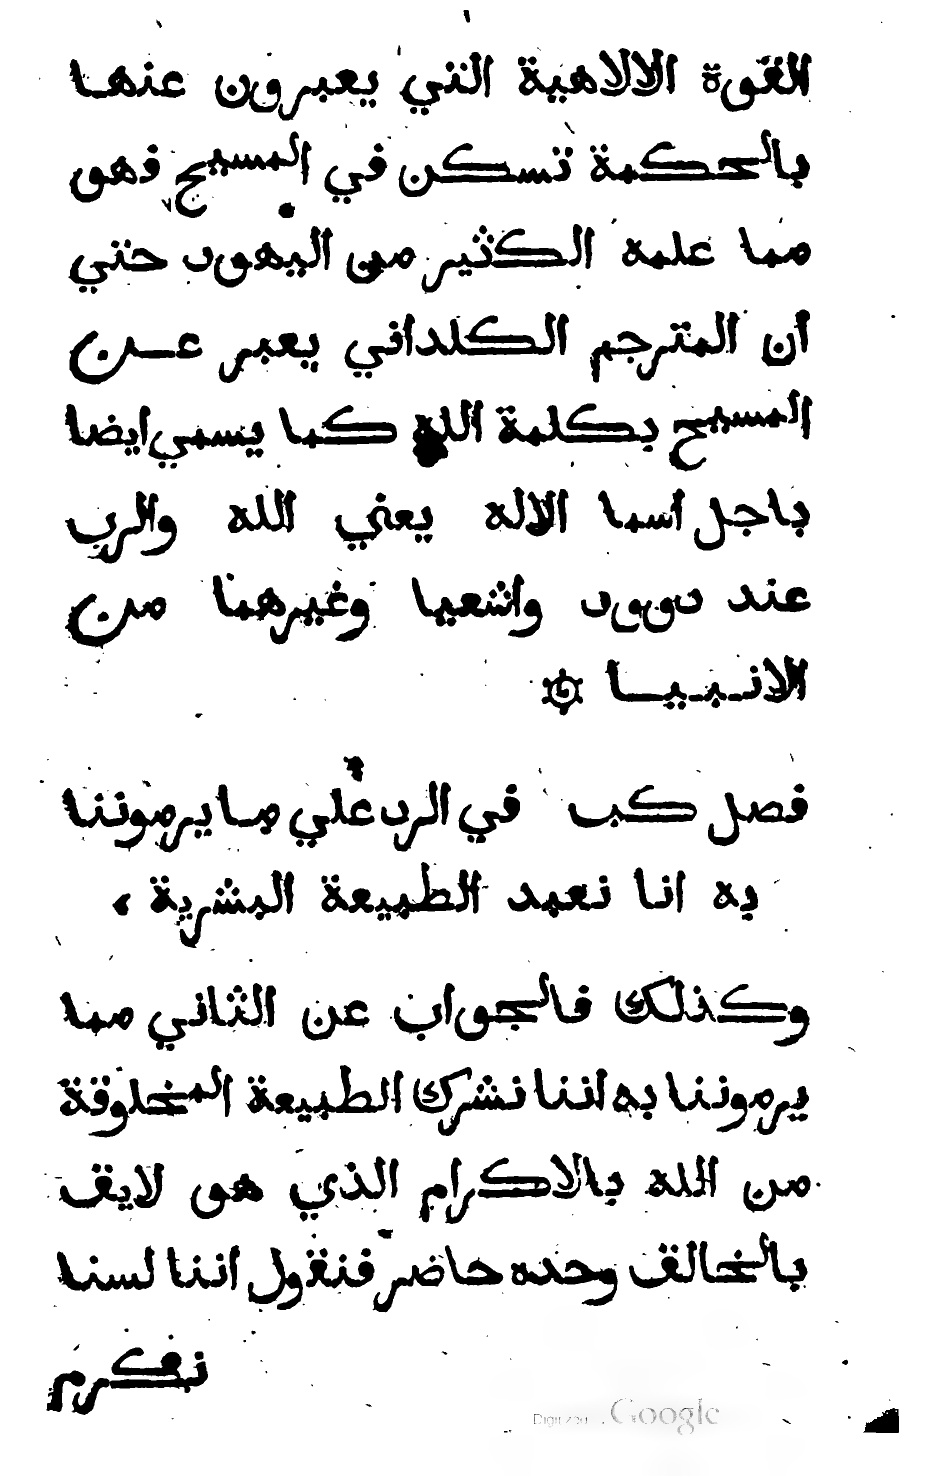 القوة الالاهية التي يعبرون عنها
بالحكمة تسكن في المسيح فهو
مما علمه الكثير من اليهود حتي
أن المترجم الكلداني يعبر عن
المسيح بكلمة الله كما يسمي ايضا
باجل اسما الاله يعني الله والرب
عند داوود واشعيا وغيرهما من
الانبيا ۞
فصل كب في الرد علي ما يرموننا
به انا نعبد الطبيعة البشرية ،
وكذلك فالجواب عن الثاني مما
يرموننا به اننا نشرك الطبيعة المخلوقة
من الله بالاكرام الذي هو لايق
بالخالق وحده حاضر فنقول اننا لسنا
نكرم
Digitized Google